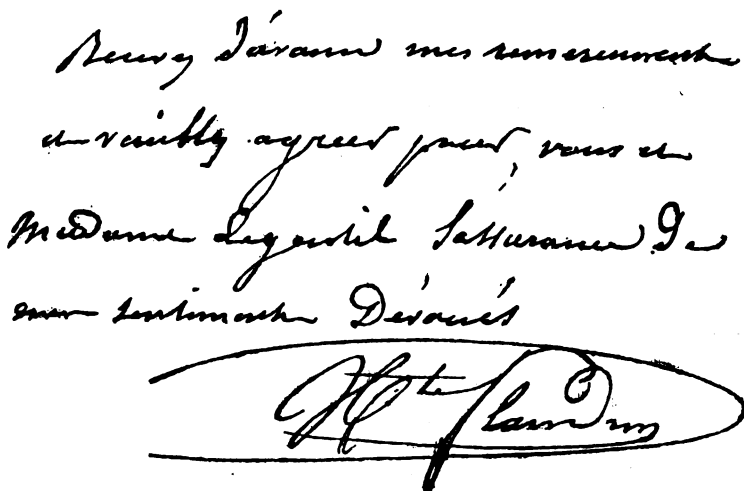 Recevez d'avance mes remerciements
et veuillez agréer pour vous et
Madame Legentil l'assurance de
mes sentiments Dévoués
Hte Flandrin